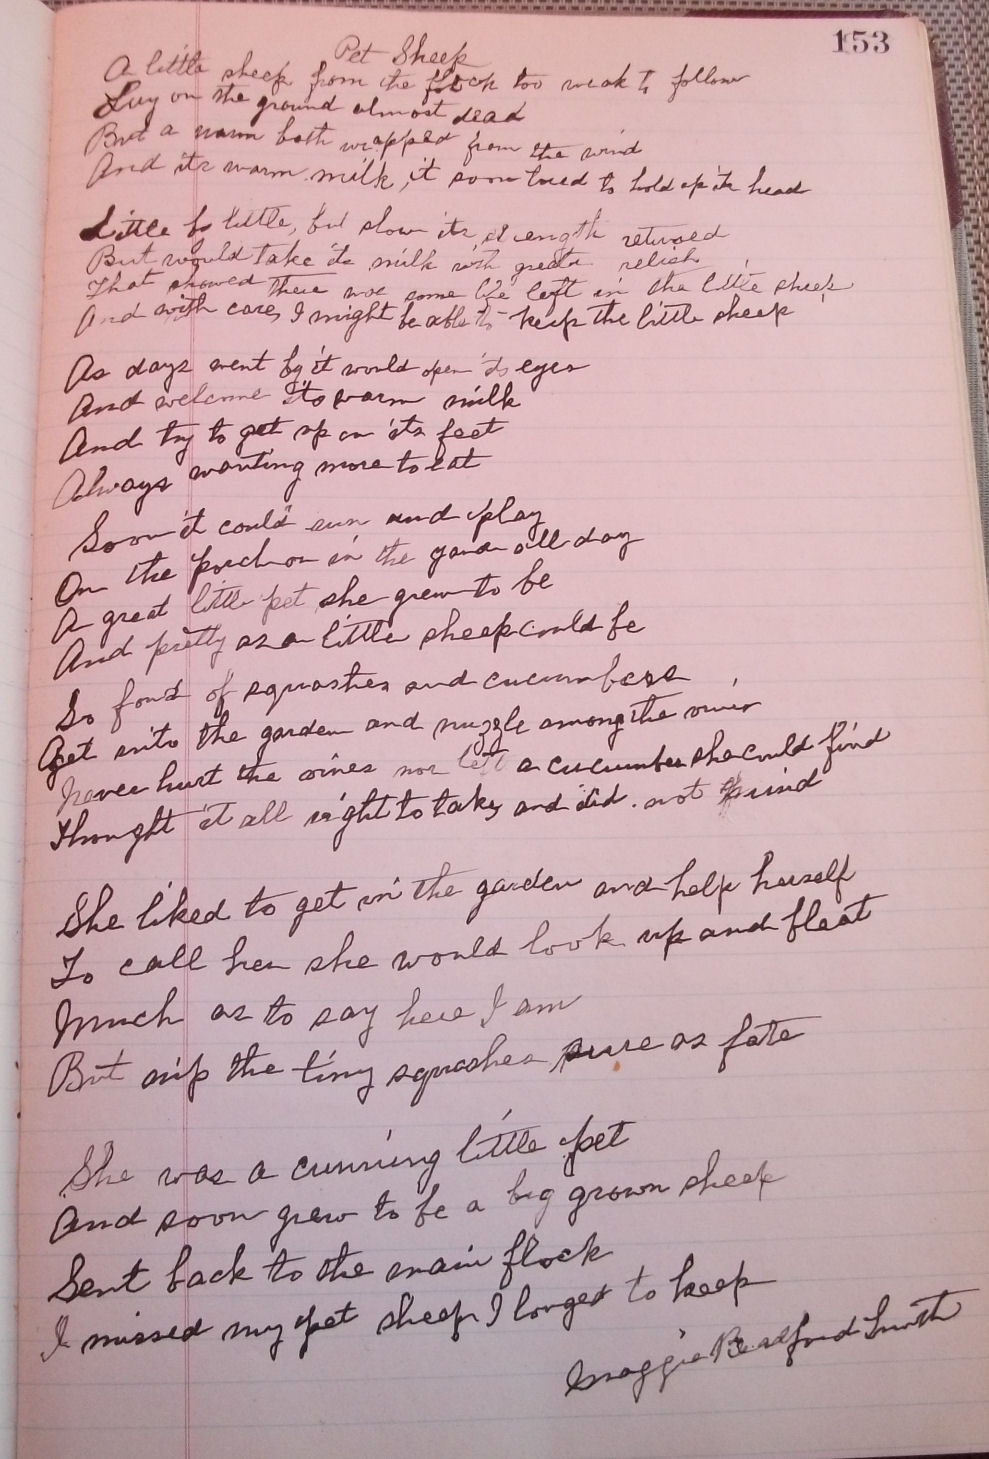 153
Pet Sheep
A little sheep from the flock too weak to follow
Lay on the ground almost dead
But a warm bath wrapped from the wind
And its warm milk, it soon tried to hold up its head
Little by little, but slow its strength returned
But would take its milk with greater relish
That showed there was some life left in the little sheep
And with care, I might be able to keep the little sheep
As days went by it would open its eyes
And welcome its warm milk
And try to get up on its feet
Always wanting more to eat
Soon it could run and play
On the porch or in the garden all day
A great little pet she grew to be
And pretty as a little sheep could be
So fond of squashes and cucumbers
Get into the garden and nuzzle among the vines
Never hurt the vines nor left a cucumber she could find
Thought it all right to take, and did not mind
She liked to get in the garden and help herself
To call her she would look up and bleat
Much as to say here I am
But nip the tiny squashes sure as fate
She was a cunning little pet
And soon grew to be a big grown sheep
Sent back to the main flock
I missed my pet sheep I longed to keep
Maggie Bradford Smith